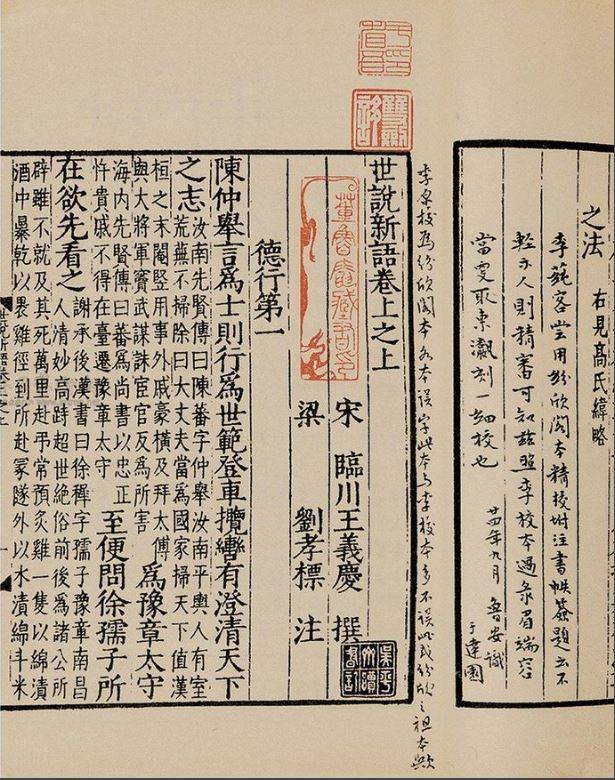 之法
右見高氏緯略
李蒓客嘗用紛欣閣本精校附注書帙簽題云不
輕示人則精審可知茲照李校本過彔眉端容
當更取東瀛刻一細校也
廿四年九月 魯安識
李校為紛欣閣本
本誤字此本与李校本多不誤此或紛欣之祖本歟
于省吾印
雙劍誃
董魯安藏書印
世說新語卷上之上
宋 臨川王義慶 撰
梁 劉孝標 注
德行第一
陳仲舉言為士則行為世範登車攬轡有澄清天下
之志
汝南先賢傳曰陳蕃字仲舉汝南平輿人有室
荒蕪不掃除曰大丈夫當為國家掃天下值漢
桓之末閹豎用事外戚豪橫及拜太傅
與大將軍竇武謀誅宦官反為所害
為豫章太守
海內先賢傳曰蕃為尚書以忠正
忤貴戚不得在臺遷豫章太守
至便問徐孺子所
在欲先看之
謝承後漢書曰徐穉字孺子豫章南昌
人清妙高跱超世絕俗前後為諸公所
辟雖不就及其死萬里赴弔常預炙雞一隻以綿漬
酒中暴乾以裹雞徑到所赴冢隧外以水漬綿斗米